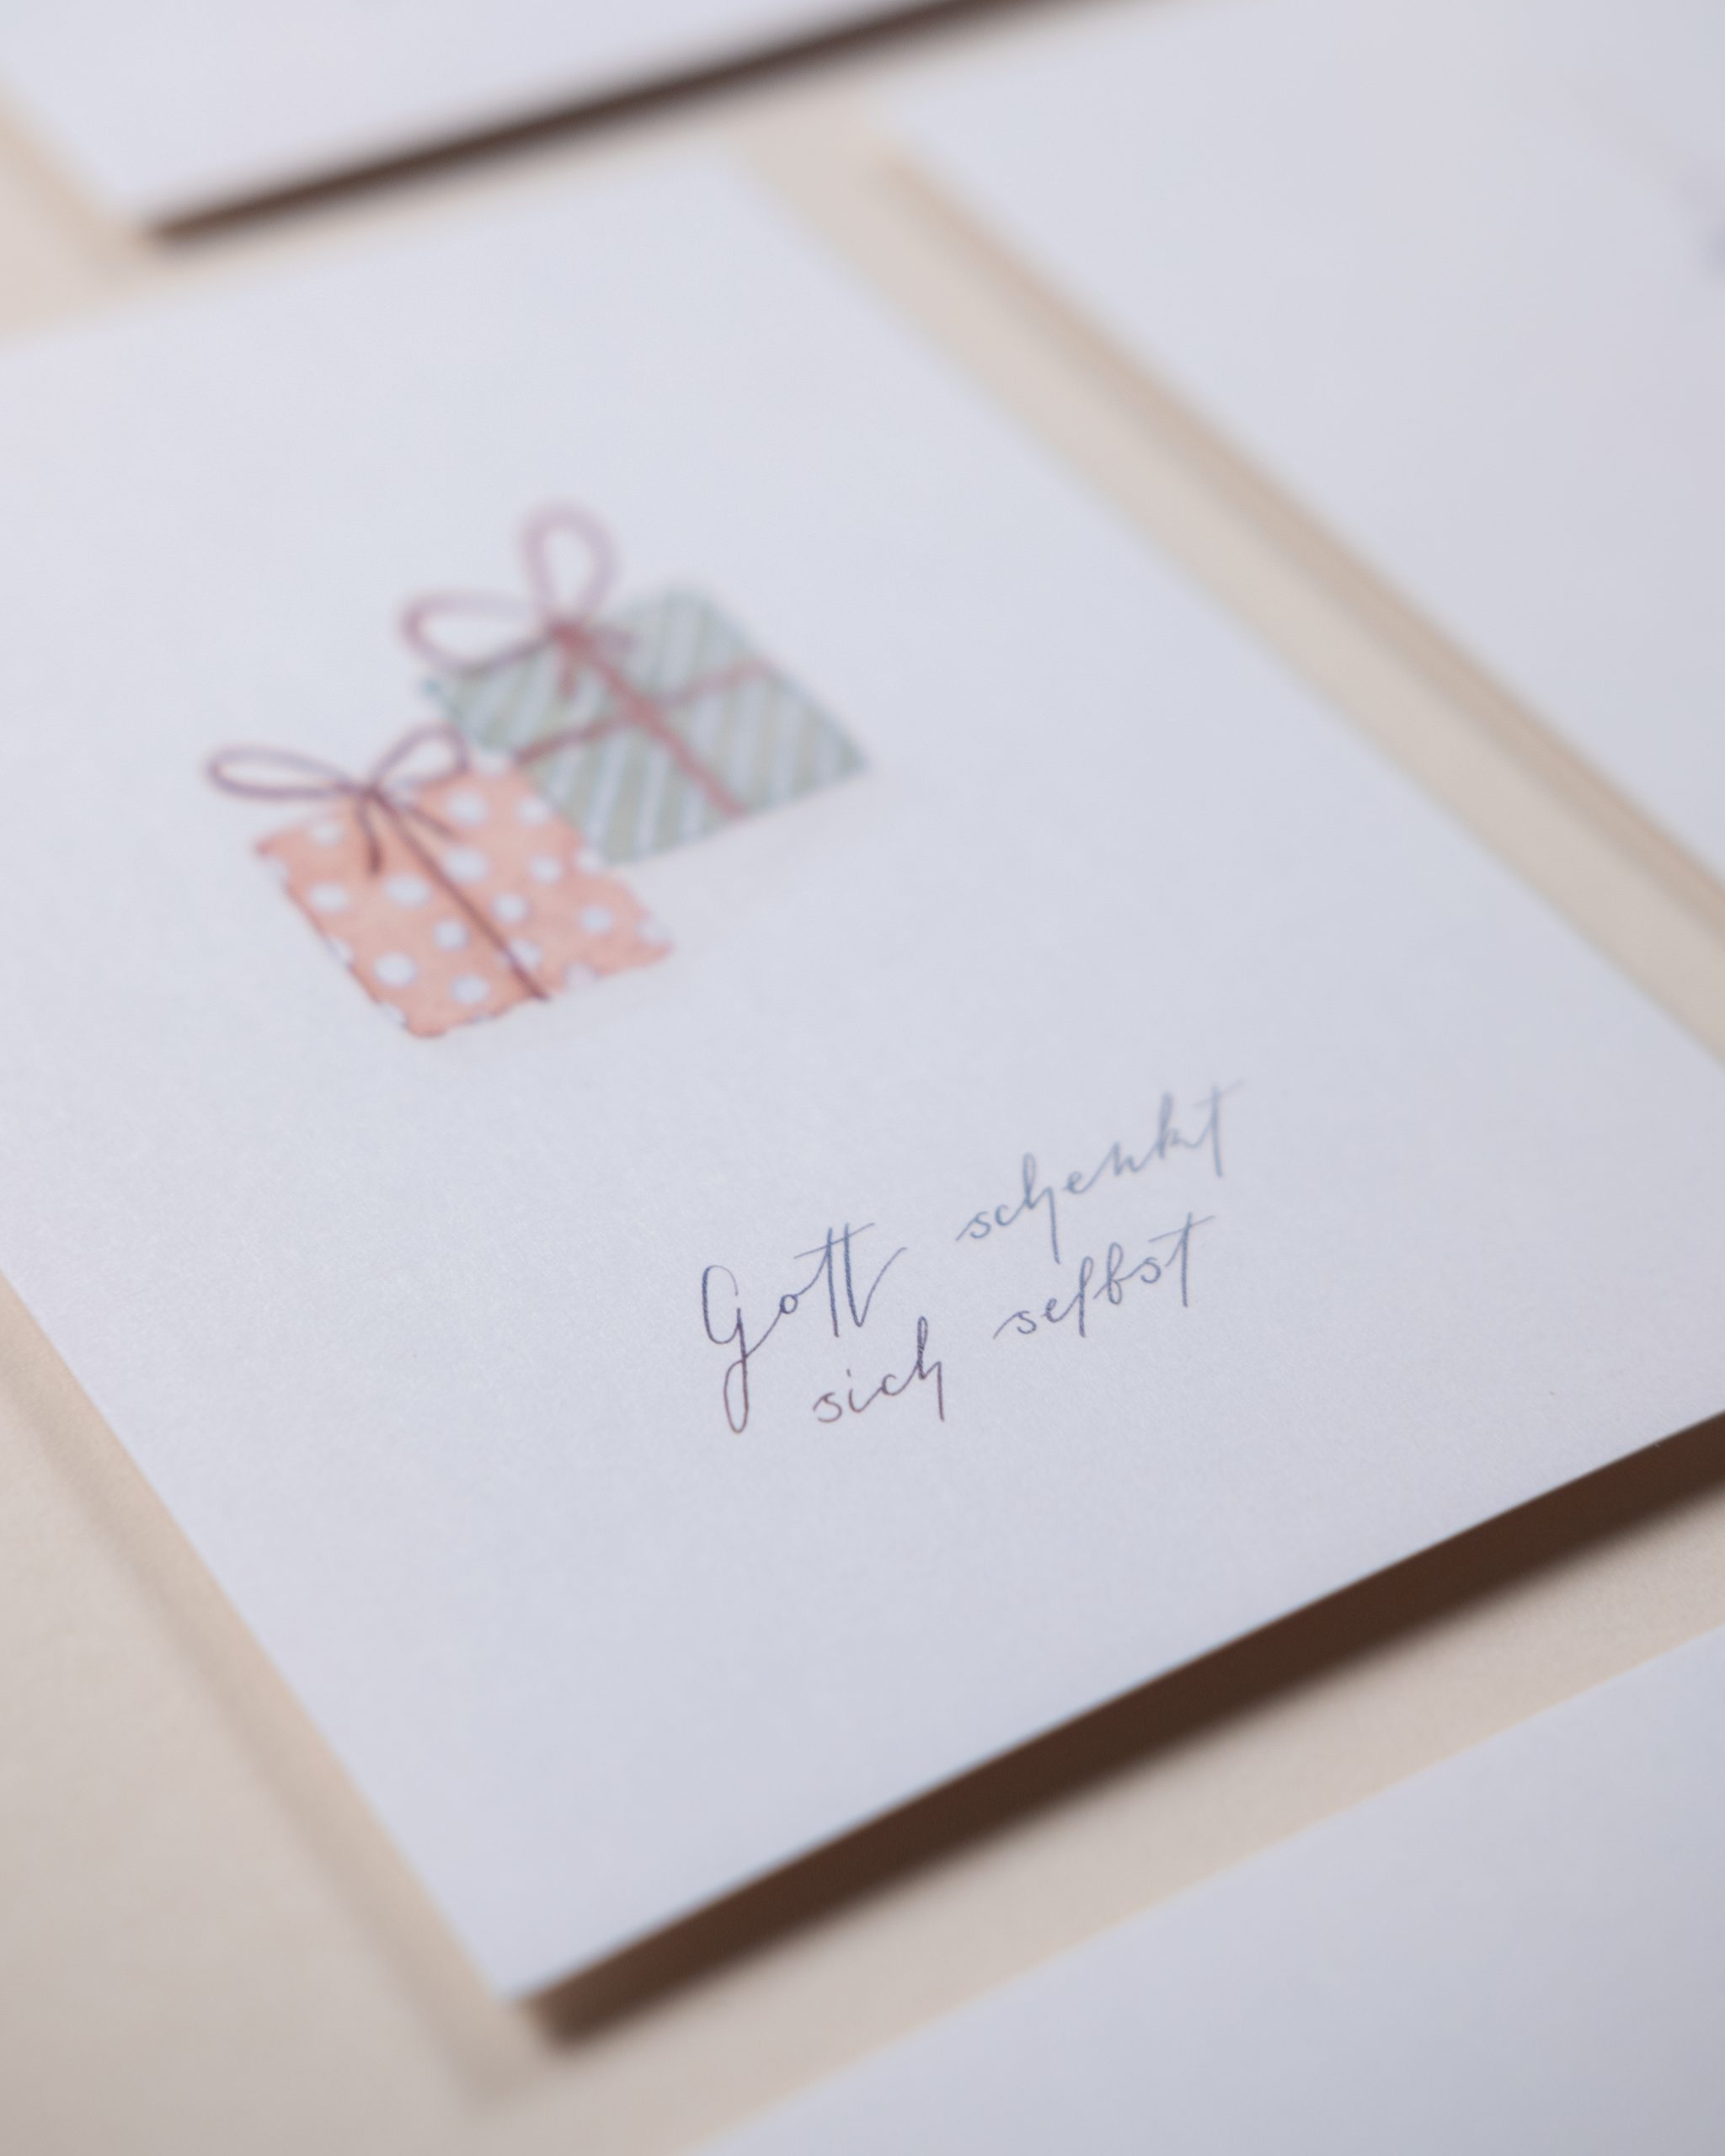 Gott schenkt
sich selbst